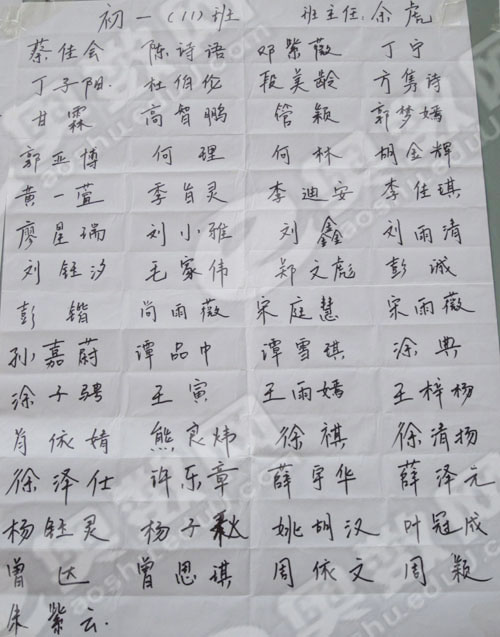 初一(11)班 班主任:余虎
蔡佳会 陈诗语 邓紫薇 丁宁
丁子阳 杜伯伦 段美龄 方隽诗
甘霖 高智鹏 管颖 郭梦嫣
郭亚博 何理 何林 胡金辉
黄一萱 季旨灵 李迪安 李佳琪
廖星瑞 刘小雅 刘鑫 刘雨清
刘钰汐 毛家伟 郑文彪 彭诚
彭锴 尚雨薇 宋庭慧 宋雨薇
孙嘉蔚 谭品中 谭雪琪 涂典
涂子骋 王寅 王雨嫣 王梓杨
肖依婧 熊良炜 徐祺 徐清扬
徐泽仕 许乐章 薛宇华 薛泽元
杨钰灵 杨子秋 姚胡汉 叶冠成
曾达 曾思琪 周依文 周颖
朱紫云